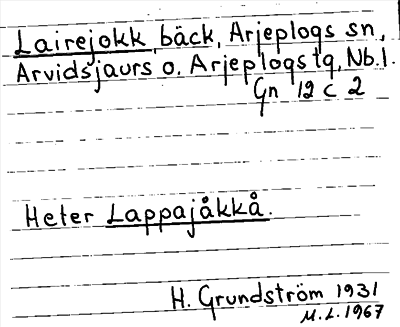 Lairejokk, bäck, Arjeplogs sn,
Arvidsjaurs o. Arjeplogs tg, Nb.l.
Gn 12 c 2
Heter Lappajåkkå.
H. Grundström 1931
M.L. 1967